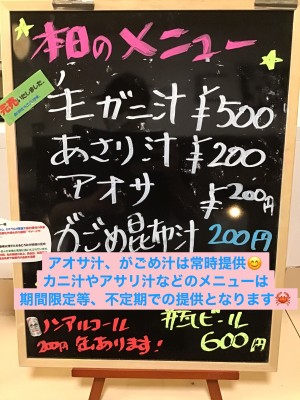 本日のメニュー
売売いたしました。
毛ガニ汁 ¥500
あさり汁 ¥200
アオサ ¥200円
がごめ昆布汁 200円
アオサ汁、がごめ汁は常時提供😊
カニ汁やアサリ汁などのメニューは
期間限定等、不定期での提供となります🦀
ノンアルコール
200円 缶あります!
瓶ビール
600円